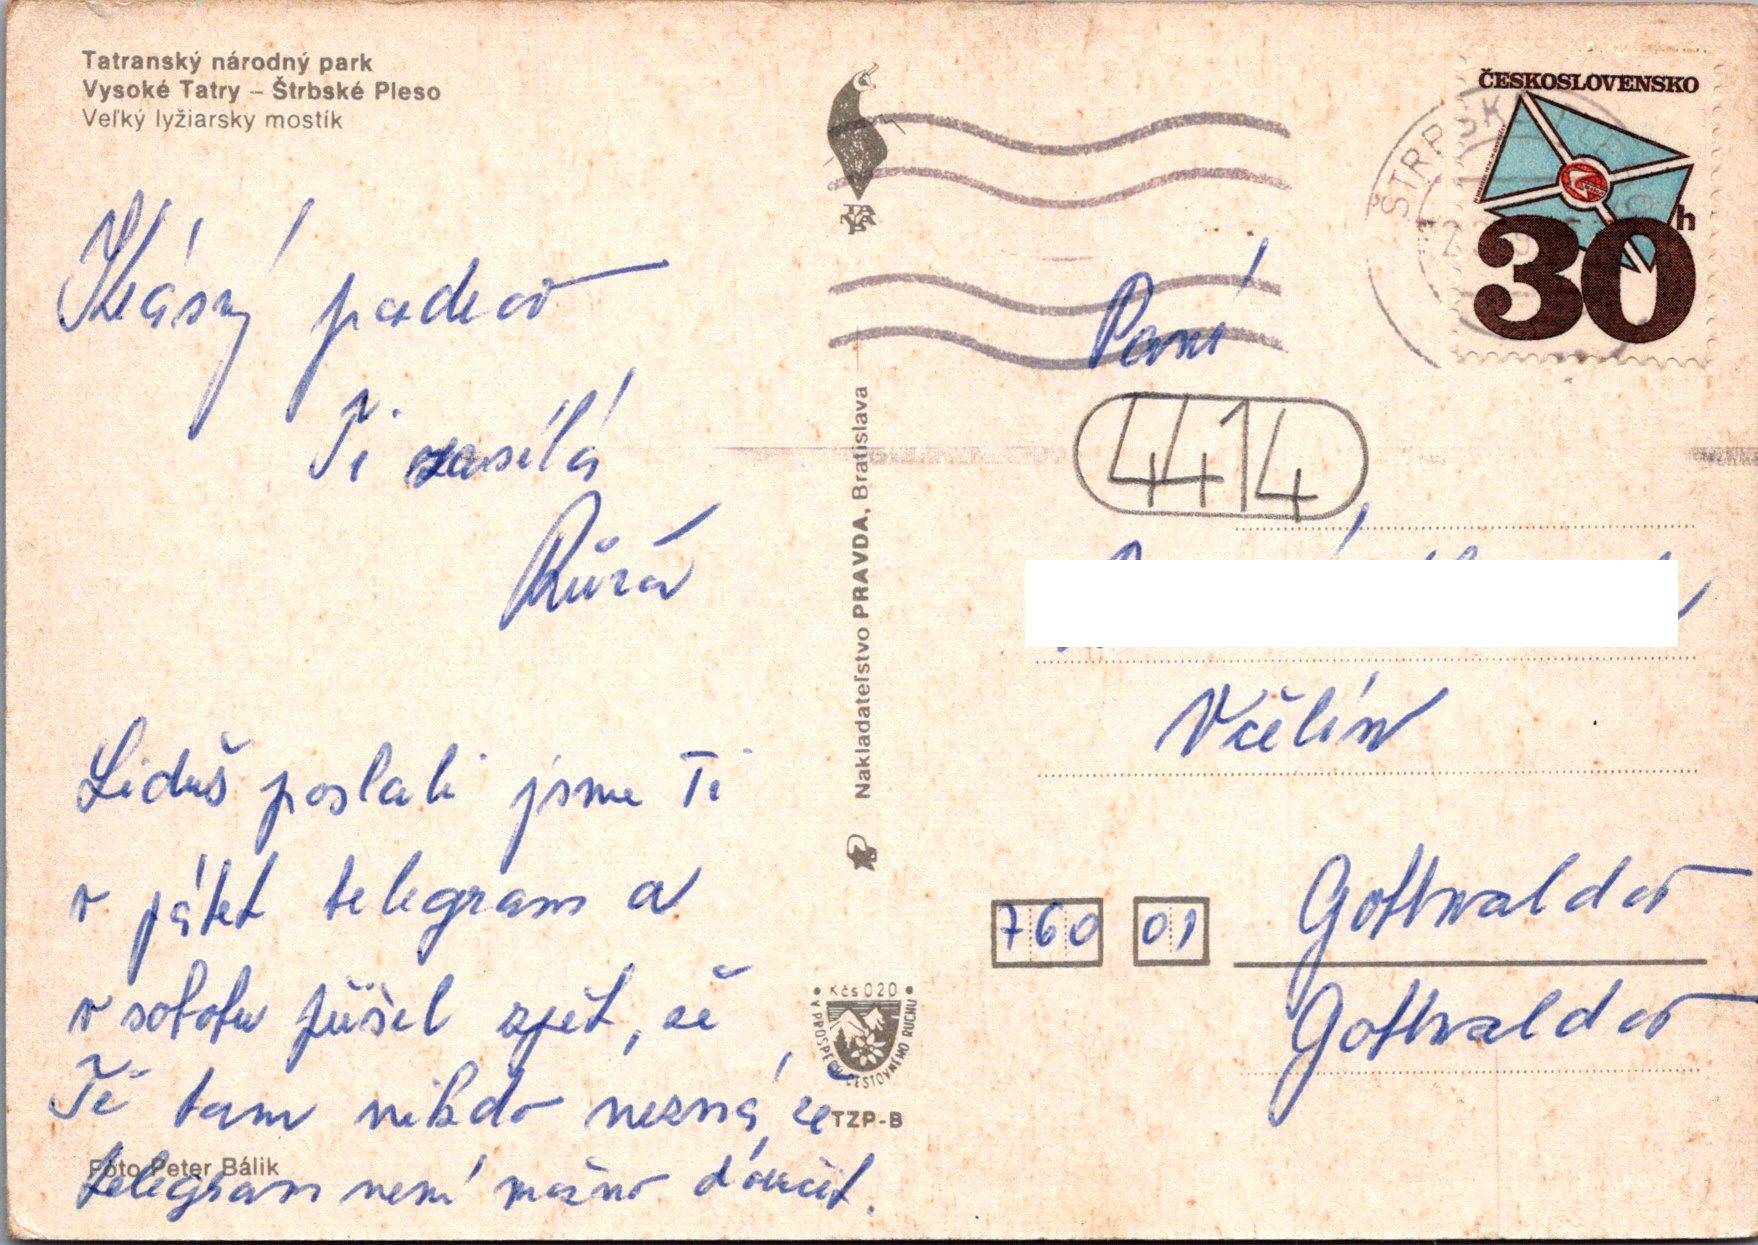 Tatranský národný park
Vysoké Tatry – Štrbské Pleso
Veľký lyžiarsky mostík
Krásný pozdrav
Ti zasílá
Růža
Liduš poslali jsme Ti
v pátek telegram a
v sobotu přišel zpět, že
Tě tam nikdo nezná, že
telegram není možno doručit.
Foto Peter Bálik
Nakladateľstvo PRAVDA, Bratislava
• Kčs 020 •
A PROSPECH CESTOVNÉHO RUCHU
TZP-B
ČESKOSLOVENSKO
30 h
Paní
4414
Včelín
760 01 Gottwaldov
Gottwaldov